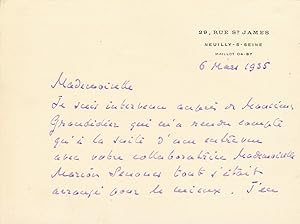 29, RUE ST JAMES
NEUILLY-S-SEINE
MAILLOT 04-87
6 Mars 1935
Mademoiselle
Je suis intervenu auprès de Monsieur
Grandidier qui m'a rendu compte
qu'à la suite d'une entrevue
avec votre collaboratrice Mademoiselle
Marion tout s'était
arrangé pour le mieux. J'en